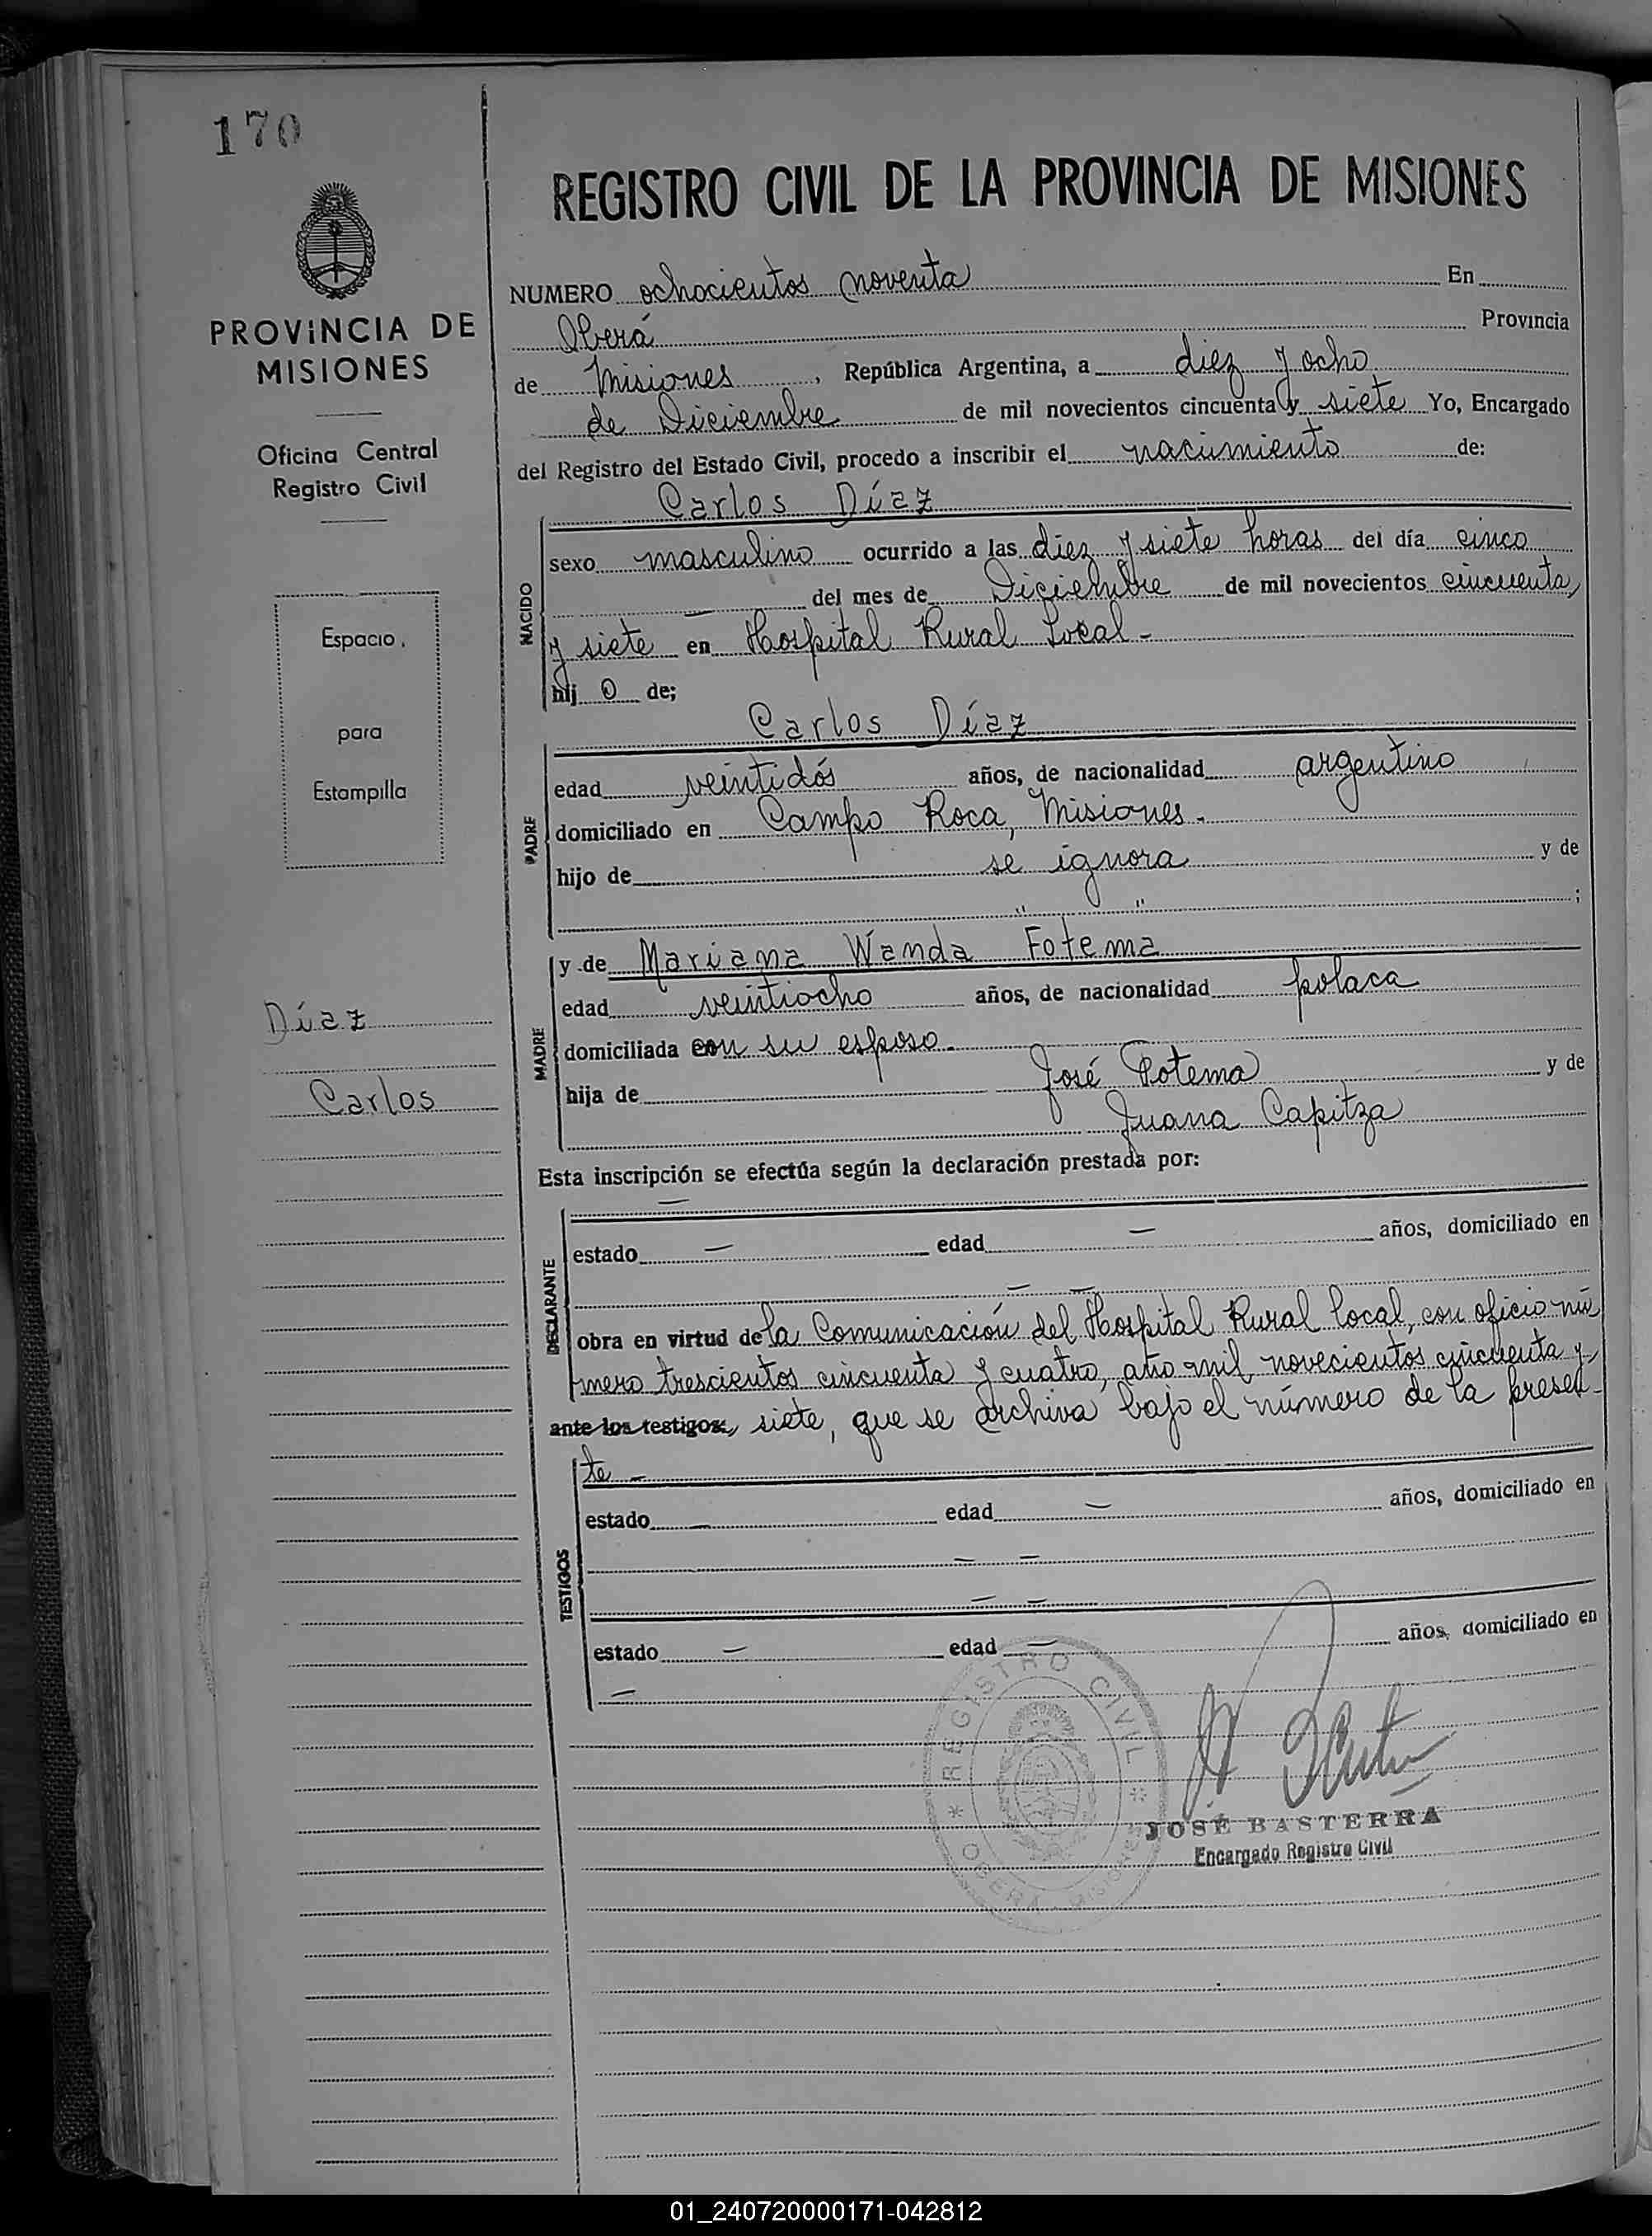 170
REGISTRO CIVIL DE LA PROVINCIA DE MISIONES
PROVINCIA DE
MISIONES
Oficina Central
Registro Civil
Espacio
para
Estampilla
Díaz
Carlos
NUMERO ochocientos noventa En
Oberá Provincia
de Misiones, República Argentina, a diez y ocho
de Diciembre de mil novecientos cincuenta y siete Yo, Encargado
del Registro del Estado Civil, procedo a inscribir el nacimiento de:
Carlos Díaz
NACIDO
sexo masculino ocurrido a las diez y siete horas del día cinco
— del mes de Diciembre de mil novecientos cincuenta
y siete en Hospital Rural Local -
hij o de;
Carlos Díaz
PADRE
edad veintidós años, de nacionalidad argentino
domiciliado en Campo Roca, Misiones -
hijo de se ignora y de
" " ;
y de Mariana Wanda Fotema
MADRE
edad veintiocho años, de nacionalidad polaca
domiciliada con su esposo -
hija de José Fotema y de
Juana Capitza
Esta inscripción se efectúa según la declaración prestada por:
—
DECLARANTE
estado — edad — años, domiciliado en
— —
obra en virtud de la Comunicación del Hospital Rural local, con oficio nú
mero trescientos cincuenta y cuatro, año mil novecientos cincuenta y
ante los testigos, siete, que se archiva bajo el número de la presen-
te -
TESTIGOS
estado — edad — años, domiciliado en
— —
— —
estado — edad — años, domiciliado en
—
REGISTRO CIVIL
OBERA - MISIONES
JOSÉ BASTERRA
Encargado Registro Civil
01_240720000171-042812